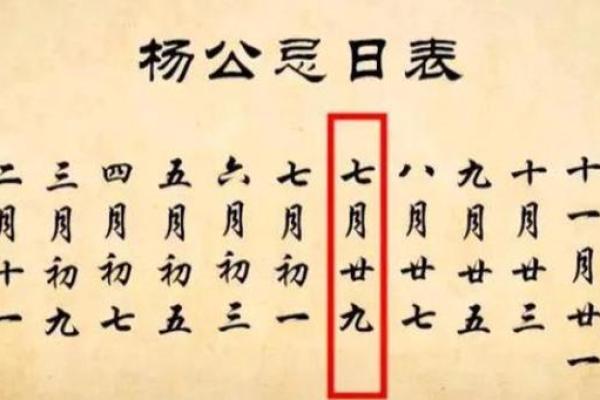 杨公忌日表
二月十一
三月初九
四月初七
五月初五
六月初三
七月初一
七月廿九
八月廿七
九月廿五
十月廿三
十一月廿一